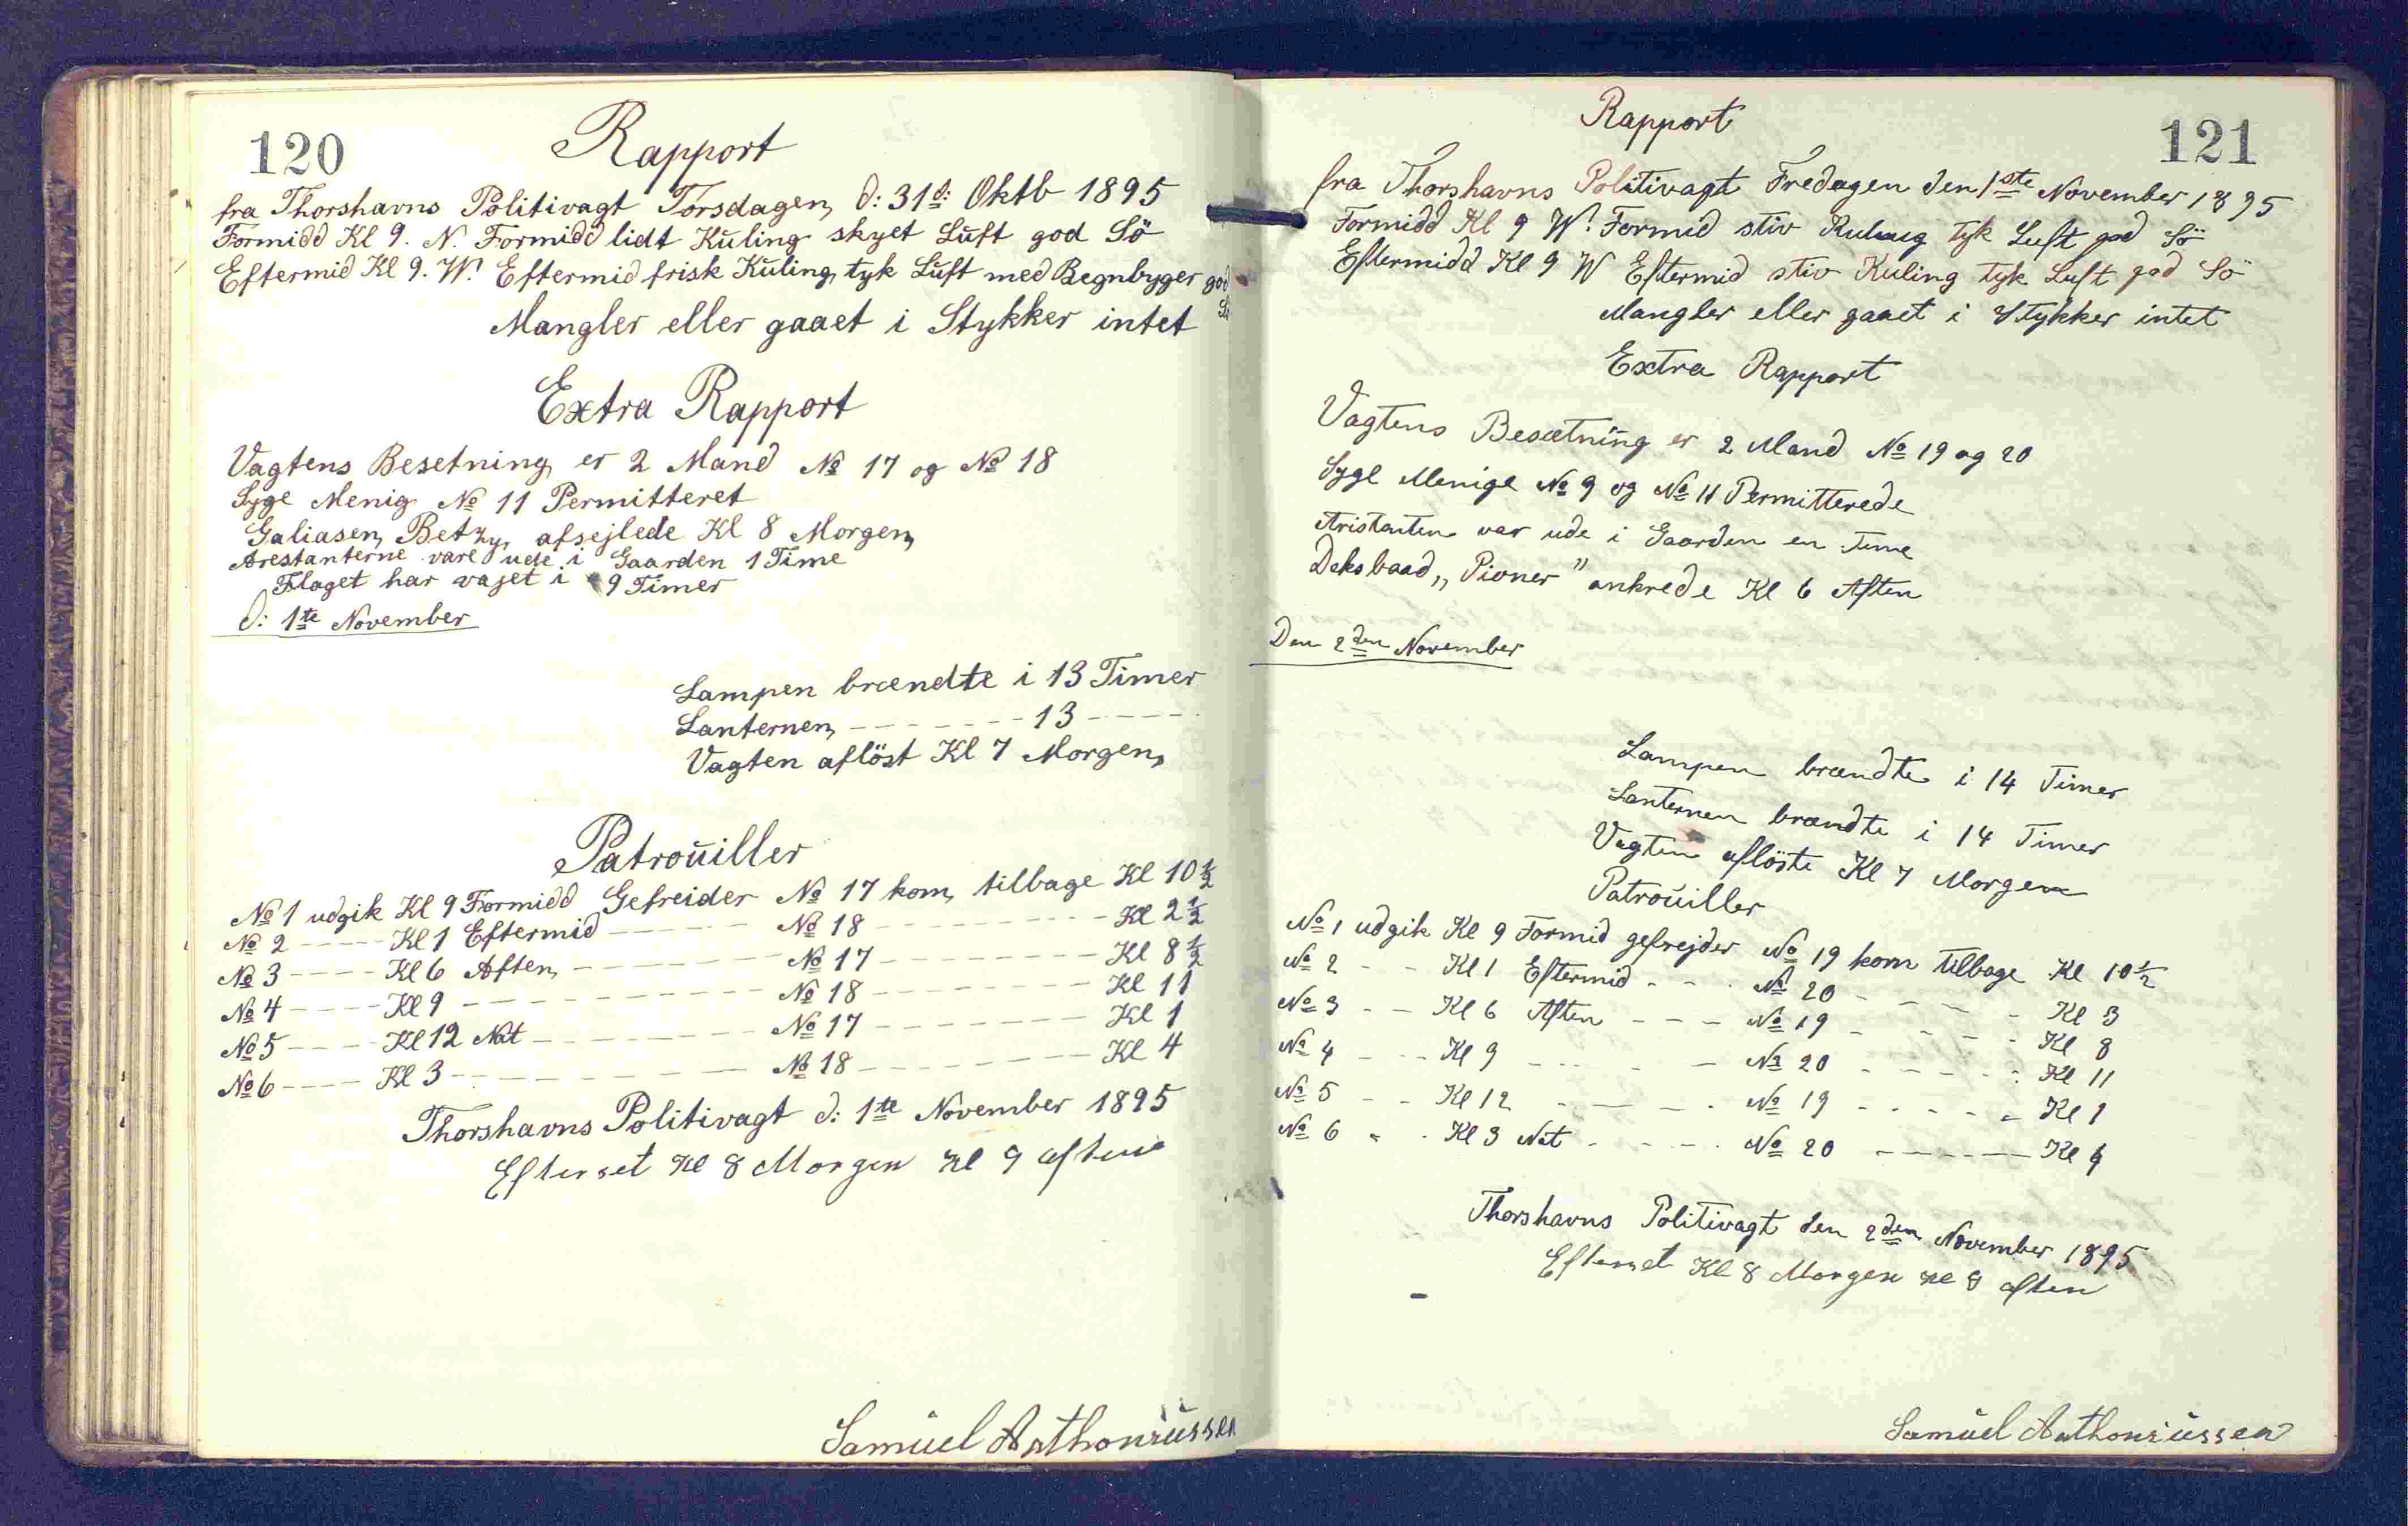 120
Rapport
fra Thorshavns Politivagt Torsdagen, d: 31d: Oktb 1895
Formidd Kl 9. N. Formidd lidt Kuling skyet Luft god Sö
Eftermid Kl 9. W. Eftermid frisk Kuling, tyk Luft med Regnbyger god
Sö
Mangler eller gaaet i Stykker intet
Extra Rapport
Vagtens Besetning er 2 Mand No 17 og No 18
Syge Menig No 11 Permitteret
Galiasen, Betzy, afsejlede Kl 8 Morgen,
Arestanterne vare ude i Gaarden 1 Time
Flaget har vajet i 9 Timer
d: 1te November
Lampen brændte i 13 Timer
Lanternen, - - - - - - - 13 - - - - -
Vagten aflöst Kl 7 Morgen,
Patrouiller
No 1 udgik Kl 9 Formidd Gefreider No 17 kom, tilbage Kl 10 1/2
No 2 - - - - - Kl 1 Eftermid - - - - - - No 18 - - - - - - - - Kl 2 1/2
No 3 - - - - Kl 6 Aften, - - - - - - - No 17 - - - - - - - - Kl 8 1/2
No 4 - - - - Kl 9 - - - - - - - - - - No 18 - - - - - - - - Kl 11
No 5 - - - - Kl 12 Nat - - - - - - - No 17 - - - - - - - - Kl 1
No 6 - - - - Kl 3 - - - - - - - - - - No 18 - - - - - - - - Kl 4
Thorshavns Politivagt d: 1te November 1895
Efterset Kl 8 Morgen Kl 9 aften
Samuel Anthoniussen
121
Rapport
fra Thorshavns Politivagt Fredagen den 1ste November 1895
Formidd Kl 9 W. Formid stiv Kuling tyk Luft god Sö
Eftermidd Kl 9 W Eftermid stiv Kuling tyk Luft god Sö
Mangler eller gaaet i Stykker intet
Extra Rapport
Vagtens Besætning er 2 Mand No 19 og 20
Syge Menige No 9 og No 11 Permitterede
Aristanten var ude i Gaarden en Time
Deksbaad „Pioner" ankrede Kl 6 Aften
Den 2den November
Lampen brændte i 14 Timer
Lanternen brændte i 14 Timer
Vagten aflöste Kl 7 Morgen
Patrouiller
No 1 udgik Kl 9 Formid gefrejder No 19 kom tilbage Kl 10 1/2
No 2 - - Kl 1 Eftermid - - - No 20 - - - - - Kl 3
No 3 - - Kl 6 Aften - - - No 19 - - - - - Kl 8
No 4 - - - Kl 9 - - - - - No 20 - - - - - Kl 11
No 5 - - Kl 12 - - - - - No 19 - - - - - Kl 1
No 6 - - Kl 3 Nat - - - - No 20 - - - - - - Kl 4
Thorshavns Politivagt den 2den November 1895
Efterset Kl 8 Morgen Kl 8 aften
Samuel Anthoniussen